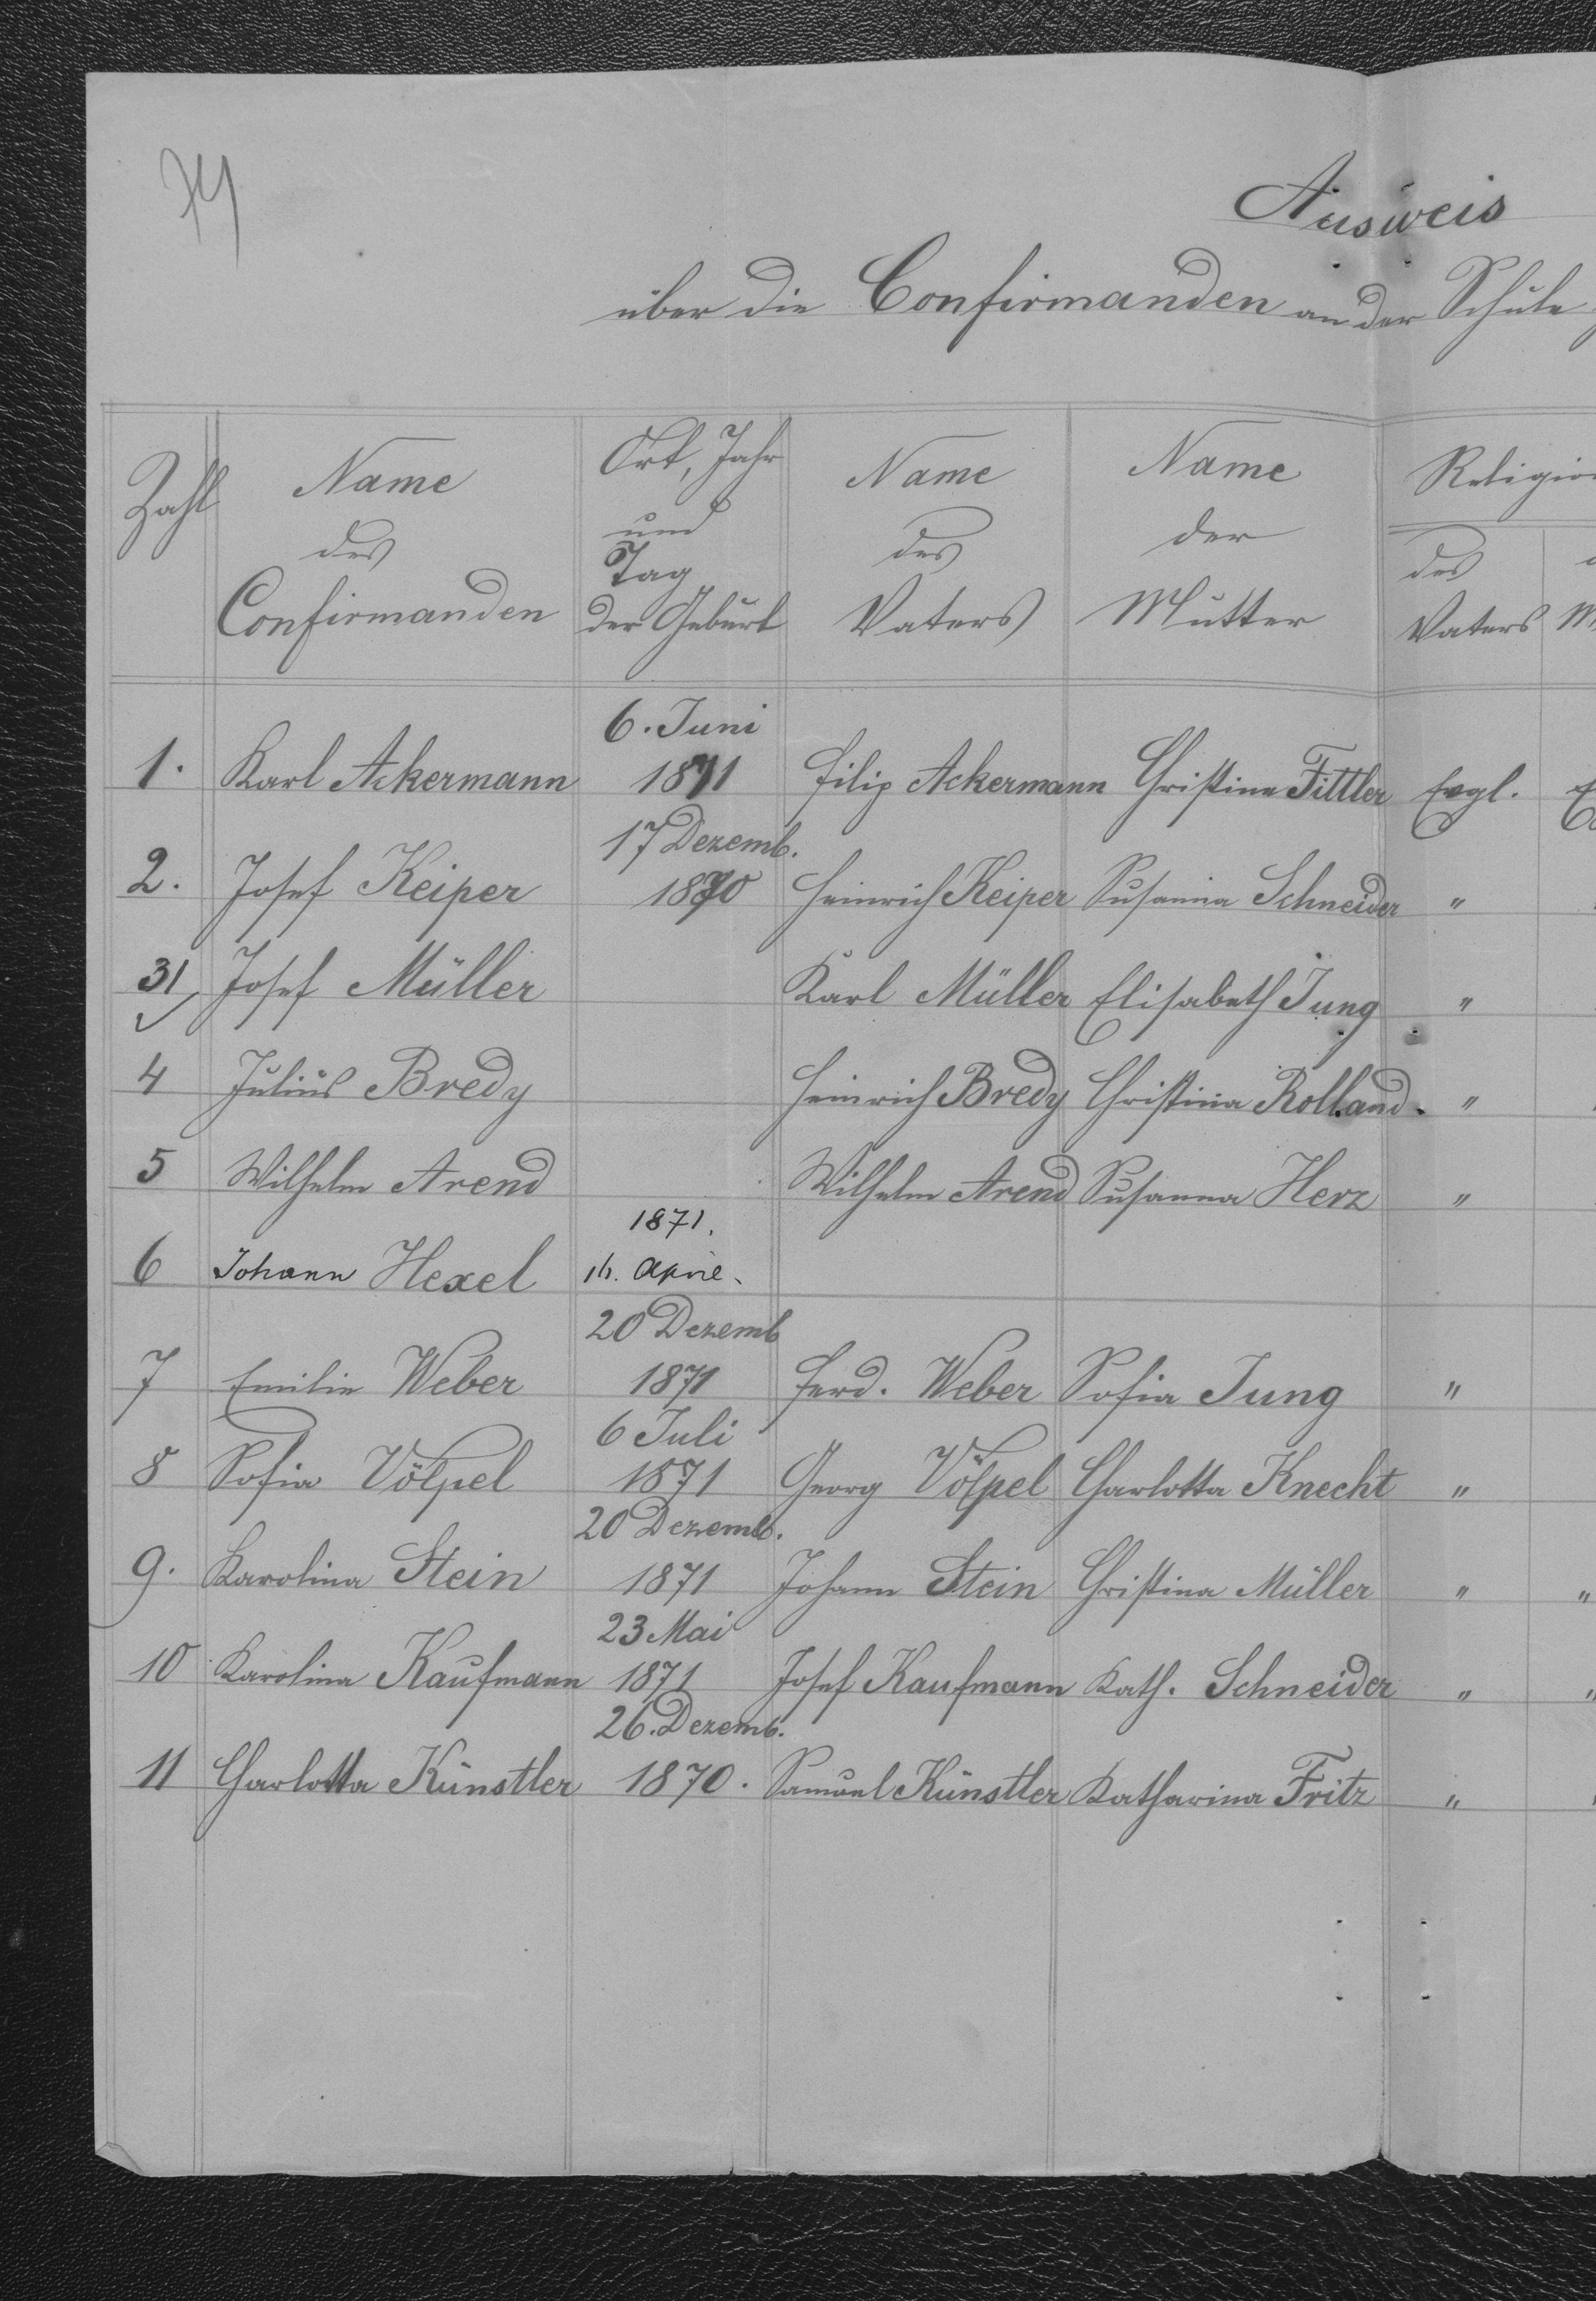 74
Ausweis
über die Confirmanden an der Schule
Zahl
Name des Confirmanden
Ort, Jahr und Tag der Geburt
Name des Vaters
Name der Mutter
Religion
des Vaters
1. Karl Ackermann 6. Juni 1871 Filip Ackermann Christina Fittler Evgl.
2. Josef Keiper 17 Dezemb. 1870 Heinrich Keiper Susanna Schneider "
3 Josef Müller Karl Müller Elisabeth Jung "
4 Julius Bredy Heinrich Bredy Christina Rolland. "
5 Wilhelm Arend Wilhelm Arend Susanna Herz "
6 Johann Hexel 1871. April
7 Emilie Weber 20 Dezemb 1871 Ferd. Weber Sofia Jung "
8 Sofia Völpel 6 Juli 1871 Georg Völpel Charlotta Knecht "
9. Karolina Stein 20 Dezemb. 1871 Johann Stein Christina Müller " "
10 Karolina Kaufmann 23 Mai 1871 Josef Kaufmann Kath. Schneider " "
11 Charlotta Künstler 26. Dezemb. 1870. Samuel Künstler Katharina Fritz "